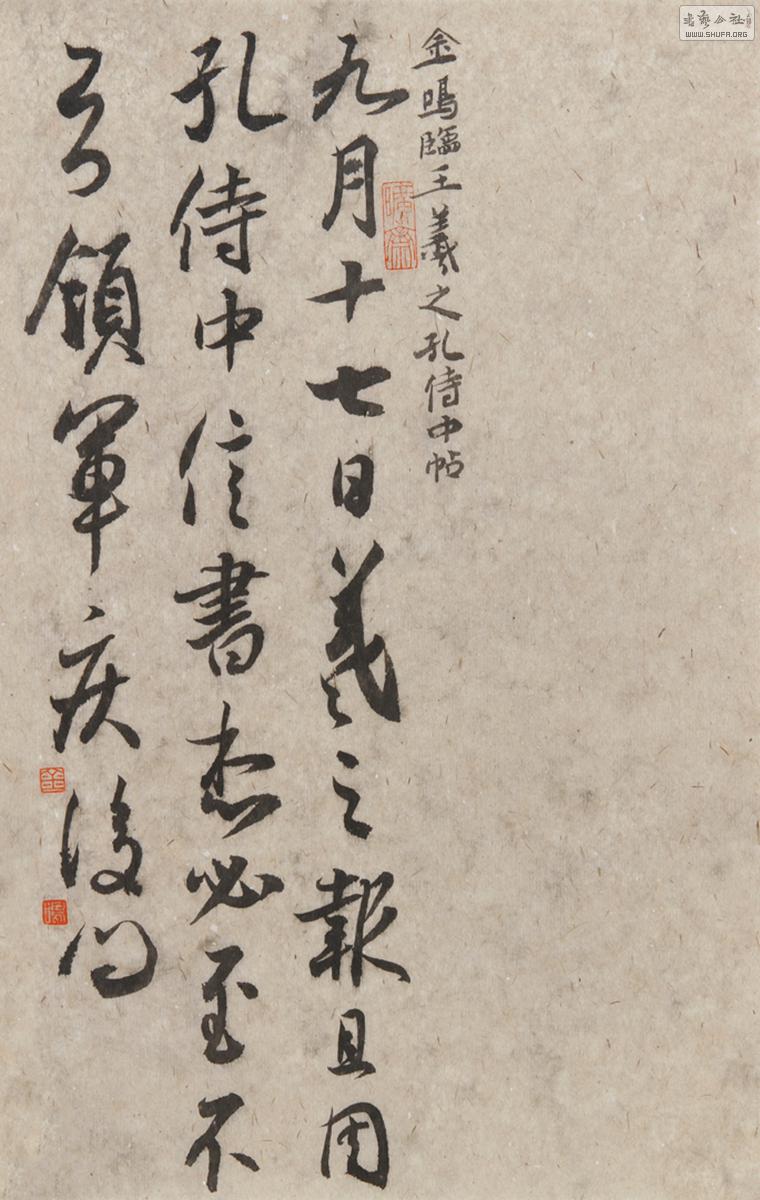 金鳴臨王羲之孔侍中帖
九月十七日羲之報且因
孔侍中信書想必至不
知領軍疾後問
書藝公社
WWW.SHUFA.ORG